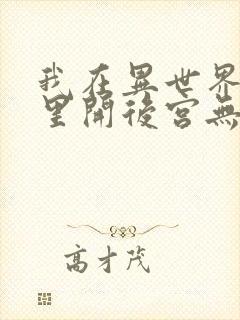 我在異世界
里開後宮無
高才茂